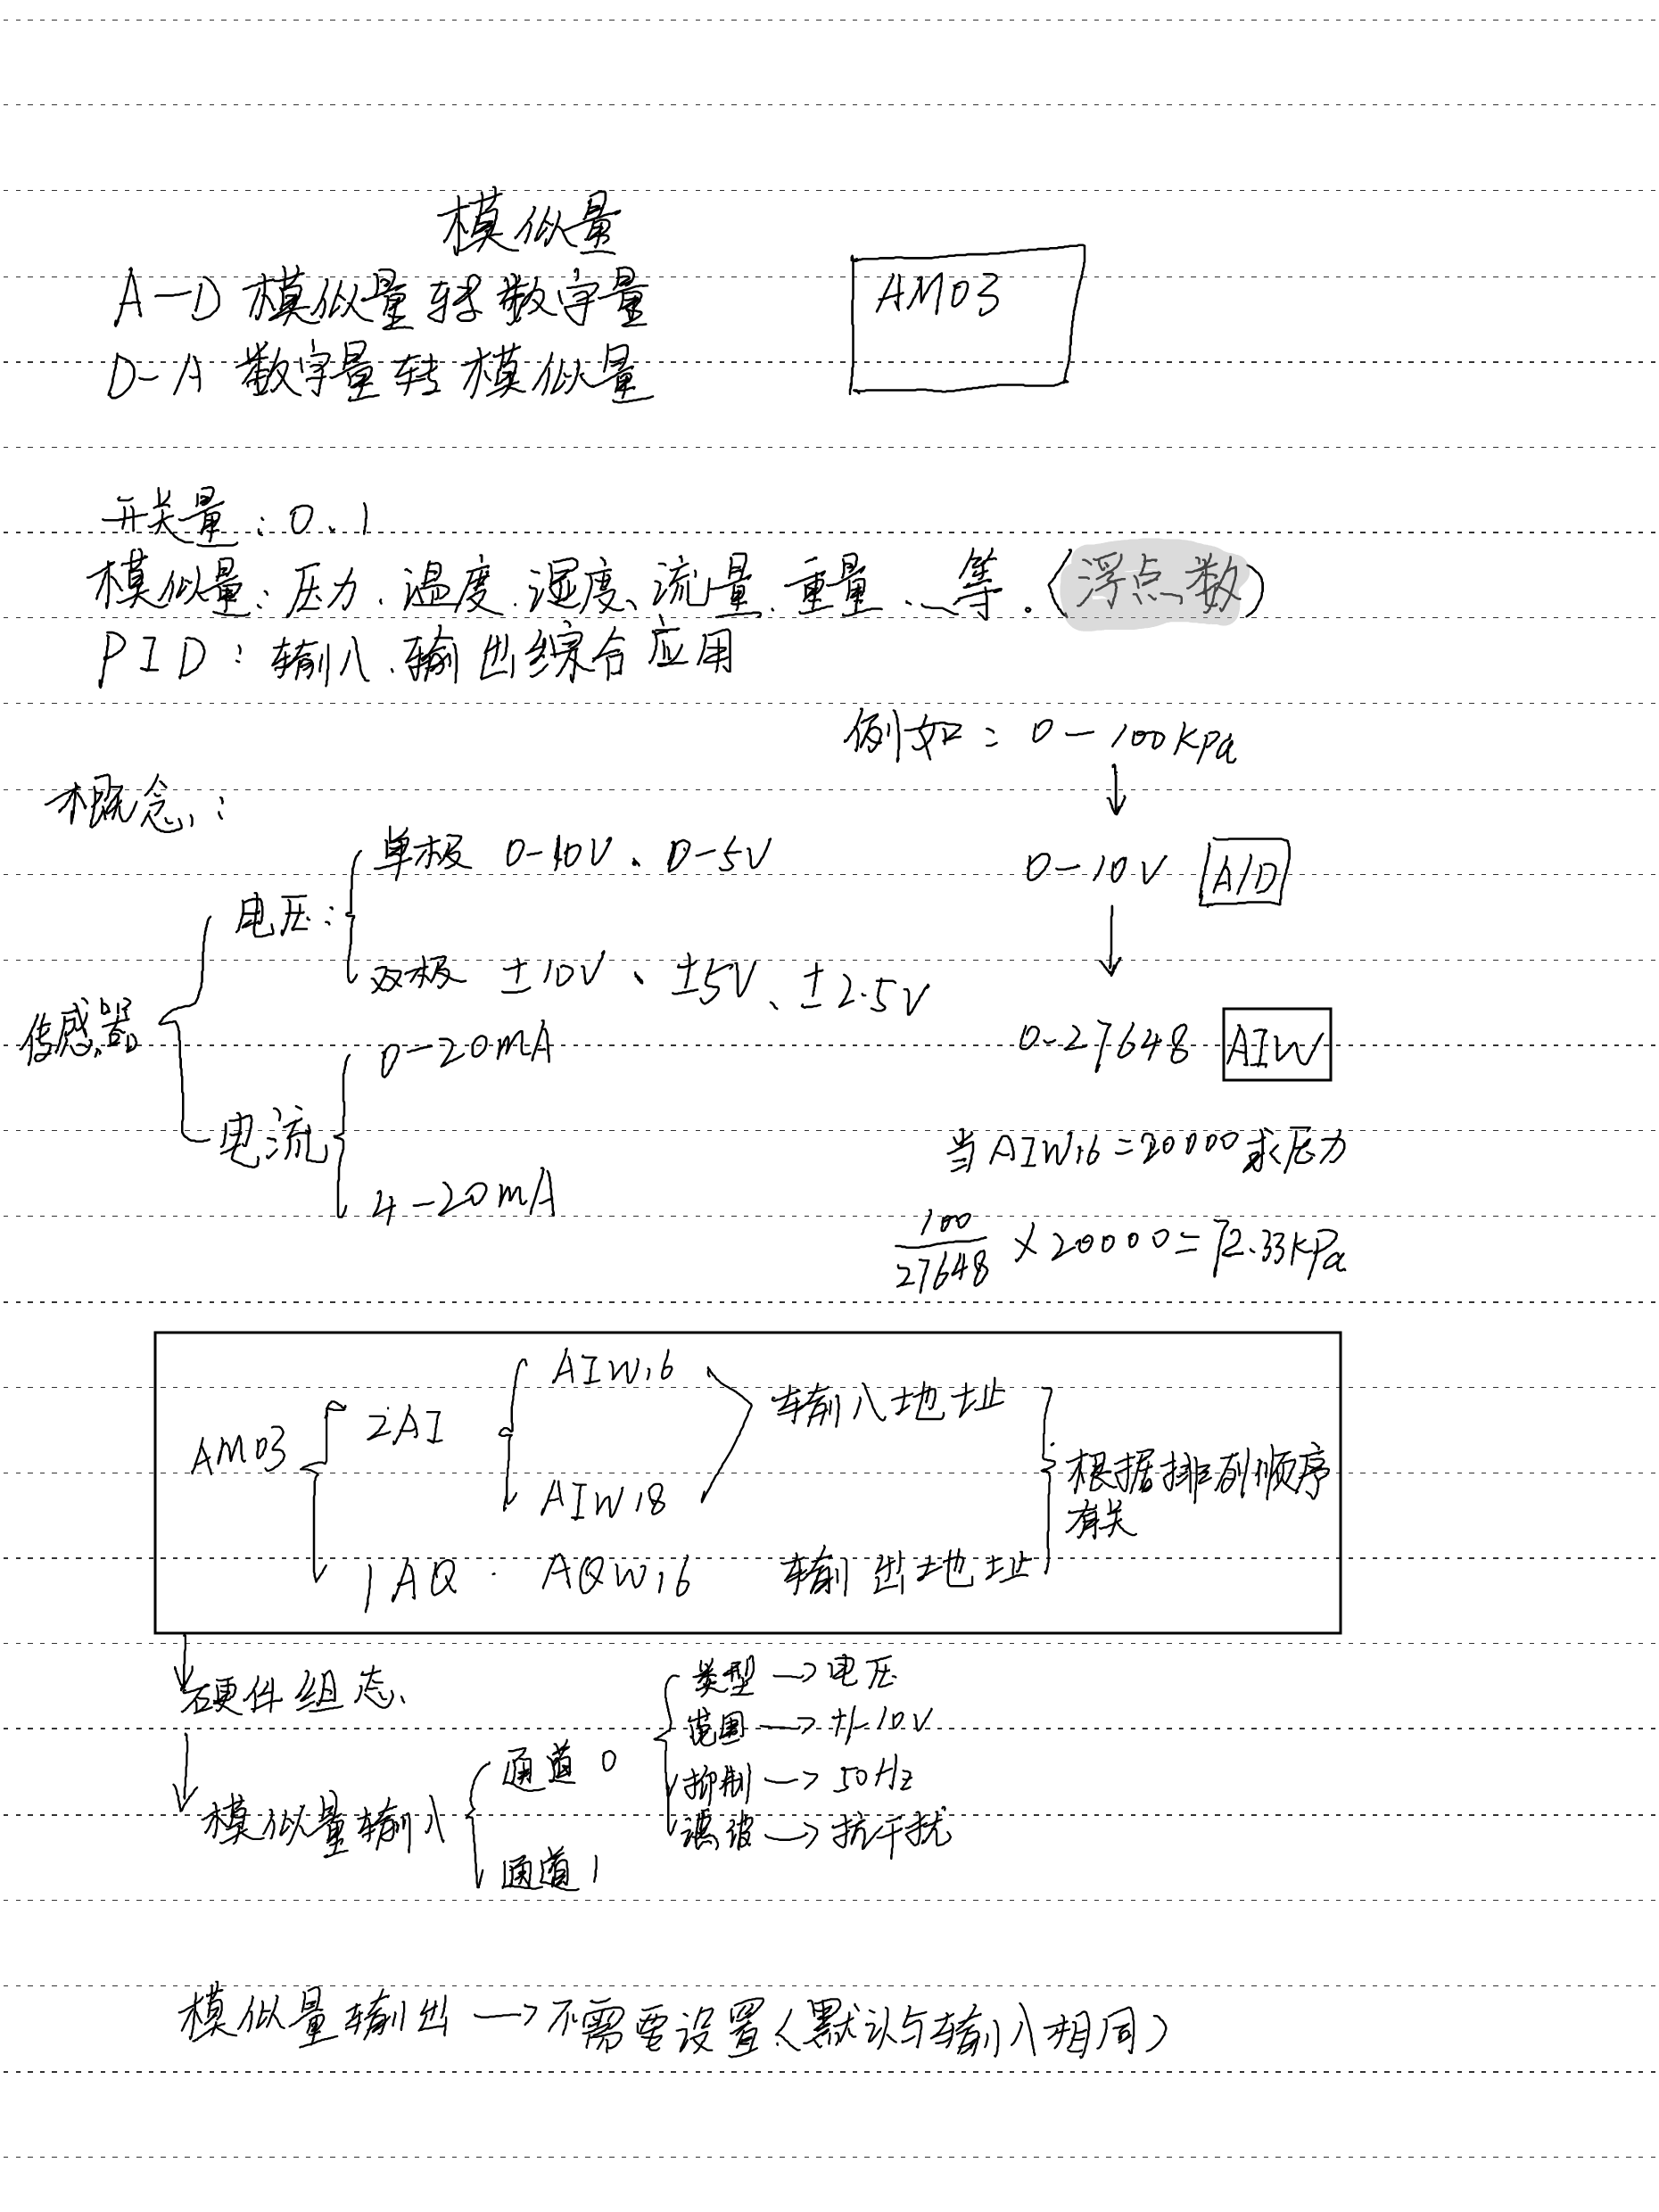 模似量
A-D 模似量转数字量
AM03
D-A 数字量转模似量
开关量：0、1
模似量：压力、温度、湿度、流量、重量、、等.（浮点数）
PID：输入、输出综合应用
例如：0-100kpa
概念：
单极 0-10V、0-5V
0-10V A/D
电压：
双极 ±10V、±5V、±2.5V
传感器
0-20mA
0-27648 AIW
电流
当AIW16=20000求压力
4-20mA
100/27648 × 20000=72.33kPa
AIW16
2AI
输入地址
AM03
根据排列顺序
AIW18
有关
1AQ · AQW16 输出地址
类型→电压
硬件组态、
范围→+/-10V
通道0
抑制→50Hz
模似量输入
滤波→抗干扰
通道1
模似量输出→不需要设置（默认与输入相同）